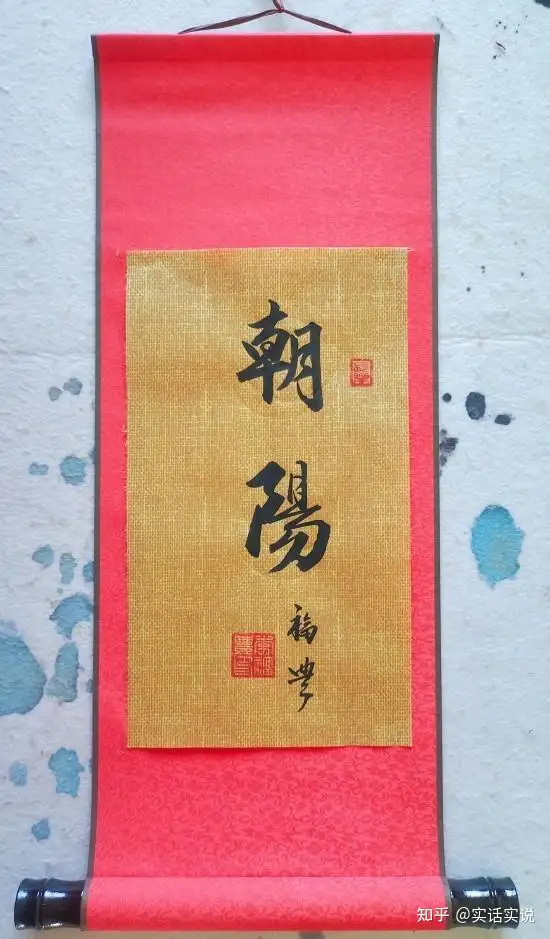 朝陽
福興
知乎 @实话实说